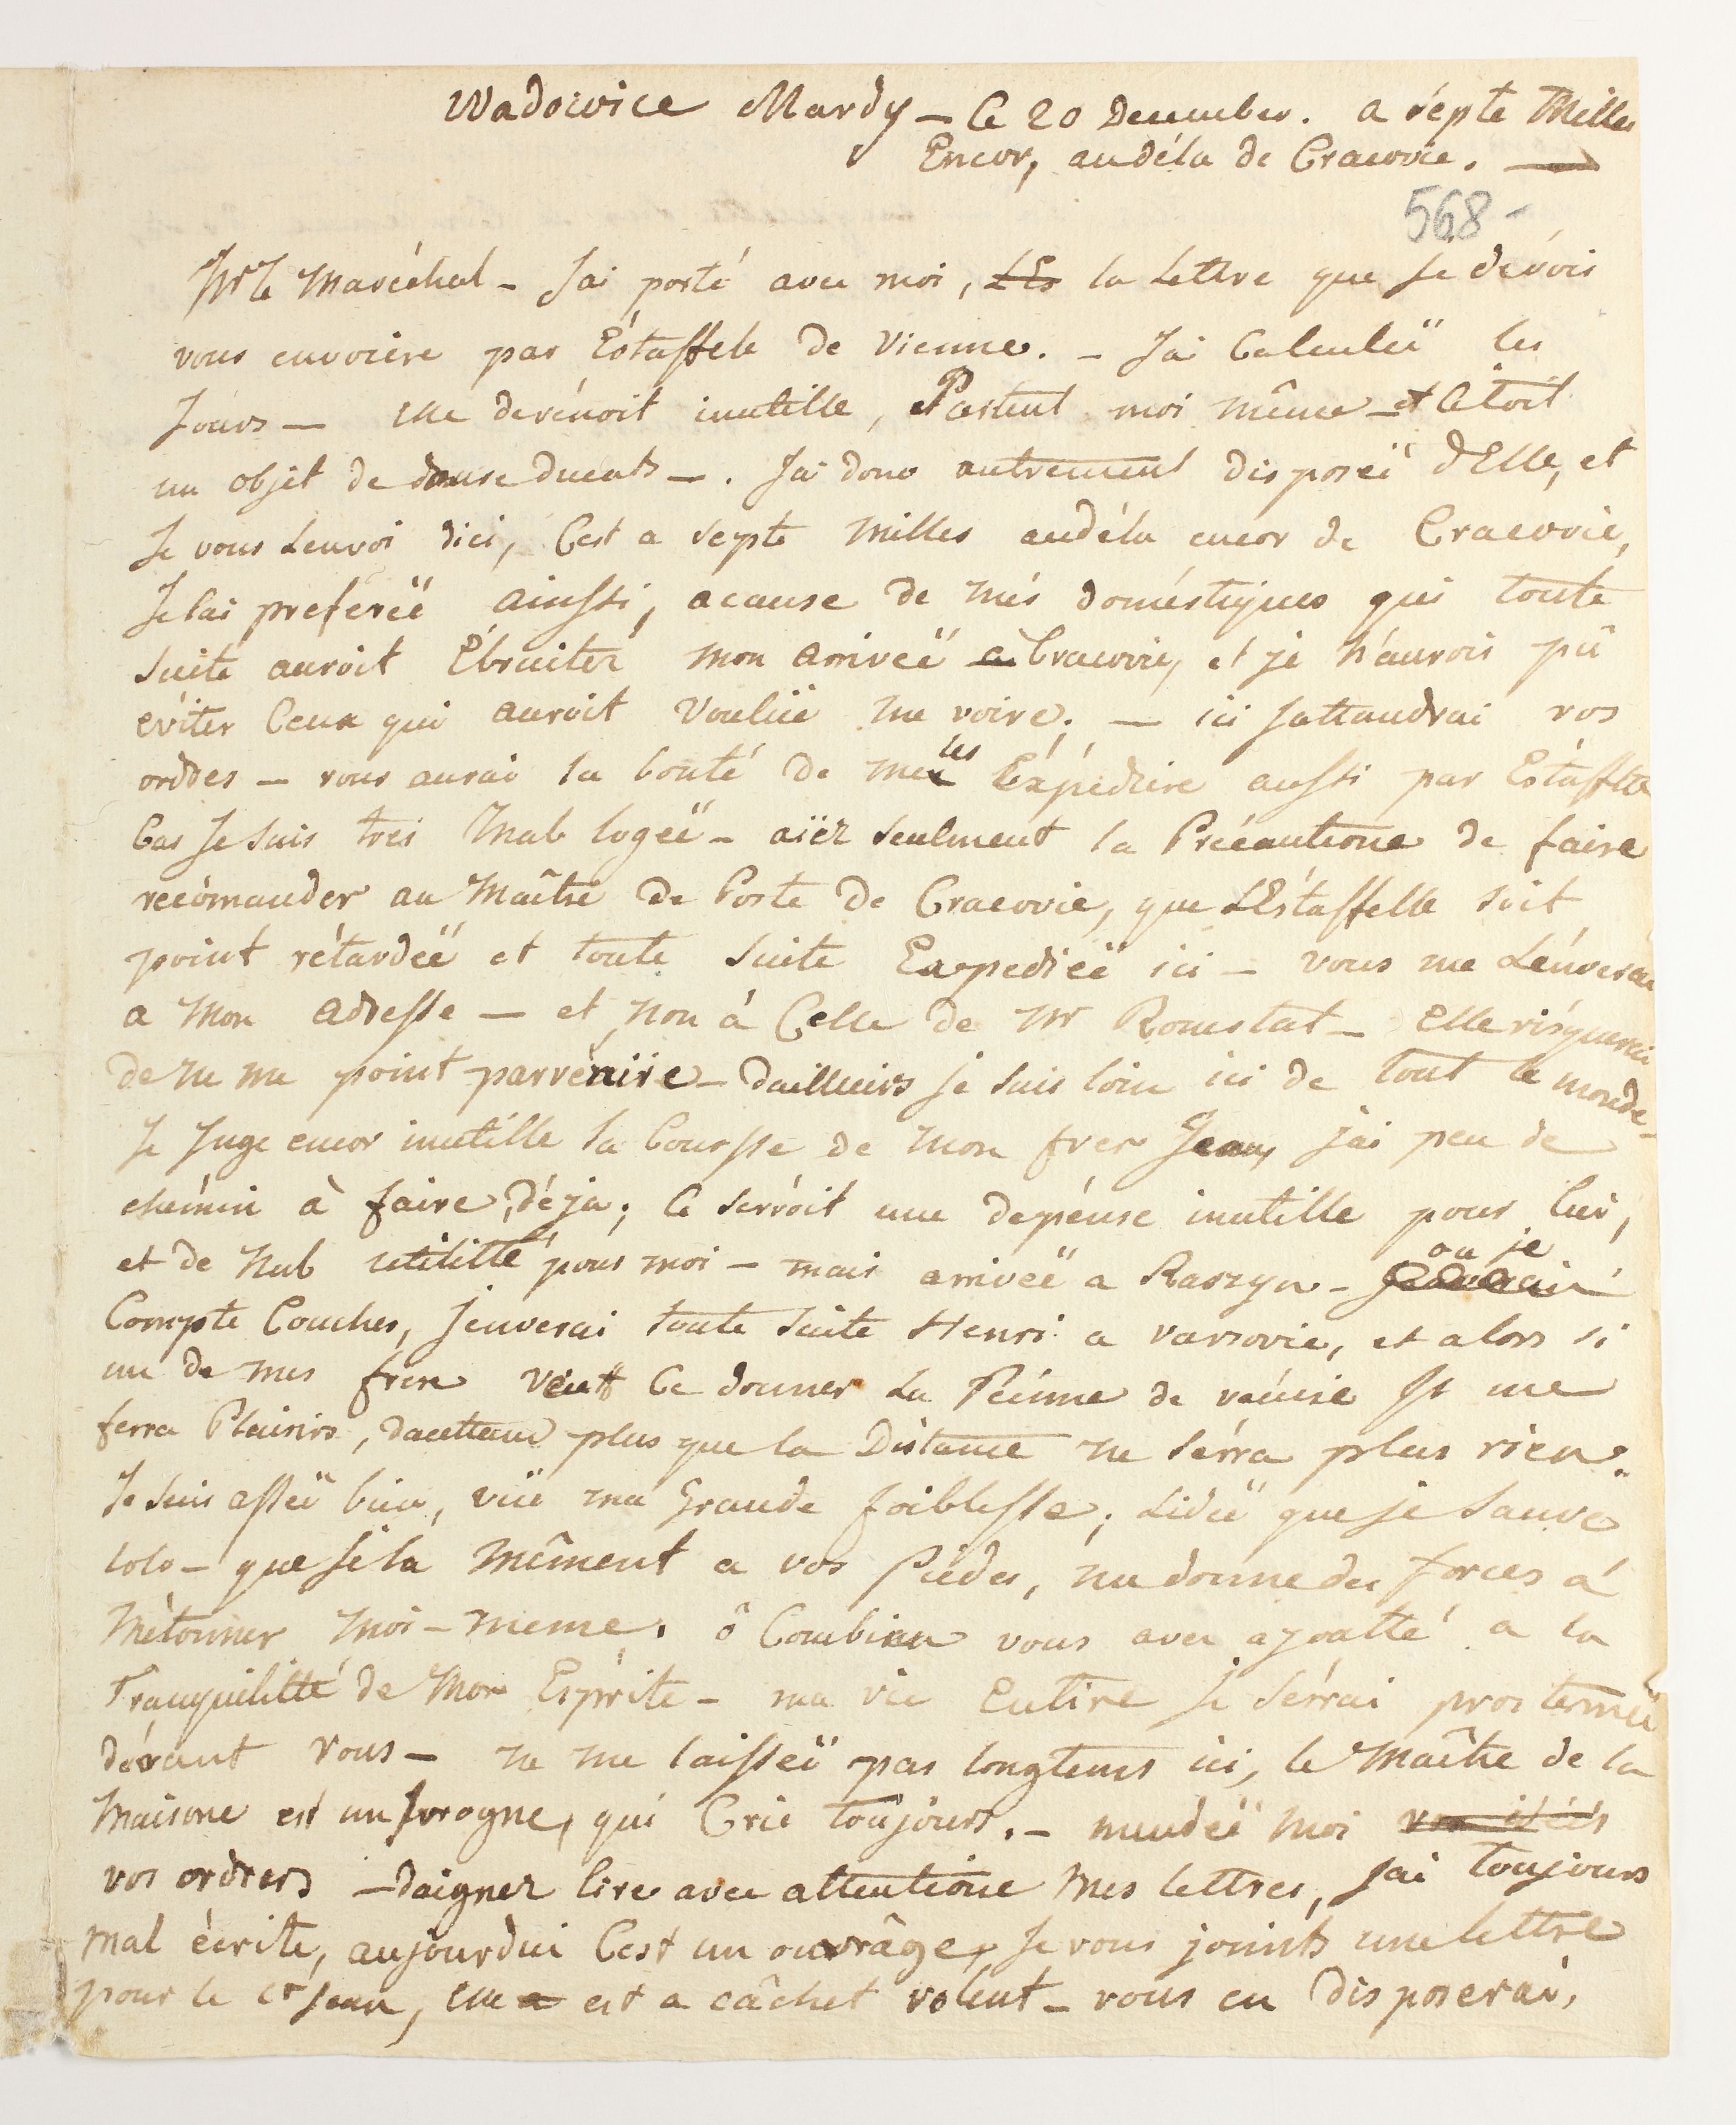 Wadowice Mardy – le 20 December. a sépte Milles
Encor, audéla de Cracovie. —
568 –
Mr le Maréchal – Jai porté avec moi, la Lettre que Je dévois
vous envoière par Estaffete de Vienne. – Jai Calculeë les
Jours – elle devénoit inutille, Partent moi même – et Cétoit
un objet de douse ducats –. Jai donc autrement disposeë dElle, et
Je vous Lenvoi dici, Cest a septe Milles audéla encor de Cracovie,
Je lai prefereë ainssi, acause de més doméstiques qui toute
suite auroit Ébruiter mon arriveë a Cracovie, et je n'aurois pû
eviter Ceux qui auroit Vouluë me voire. – ici Jattandrai vos
orddes – vous aurai la bonté de me les Expedière aussi par Estaffete
Car Je suis tres Mal logeë – aïéz seulment la Précautione de faire
recòmander au Maître de Poste de Cracovie, que LEstaffelle soit
point rétardeë et toute suite Expedieë ici – vous me Lénverai
a Mon adresse – et non à Celle de Mr Roustat – elle risquerai
de ne me point parvéniire – dailleuirs je suis loin ici de tout le monde –
Je Juge encor inutille la Coursse de mon frer Jean, jai peu de
chémin à faire, déja; Ce serroit une depénse inutille pour lui,
et de Nul utilitté pour moi – mais arriveë a Raszyn – ou je
Compte Coucher, Jenverai toute suite Henri a varsovie, et alors si
un de mes frere veut Ce donner La Péinne de vénire Il me
ferra Plaisirs, dautteur plus que la Distance ne sérra plus rien.
Je suis asseë bien, vüe ma Grande foiblesse; Lideë que je sauve
Lolo – que Je la Mêment a vos Pièdes, me donne des forces à
Métonner Moi – meme. ô Combien vous avez ajoutté a la
Tranquilitté de Mon Esprite – ma vie Entire Je Sérrai prosterneë
dévant Vous – ne me laisseë pas longtems ici, le Maître de la
Maisone est un Jvrogne, qui Crie toujours. – mandeë moi
vos ordrers – daignez lire avec attentione Mes lettres, Jai toujours
mal écrite, aujourdui Cest un ouvrâge, Je vous joints une lettre
pour le Cr Jean, elle est a câchet volent – vous en disposerai,